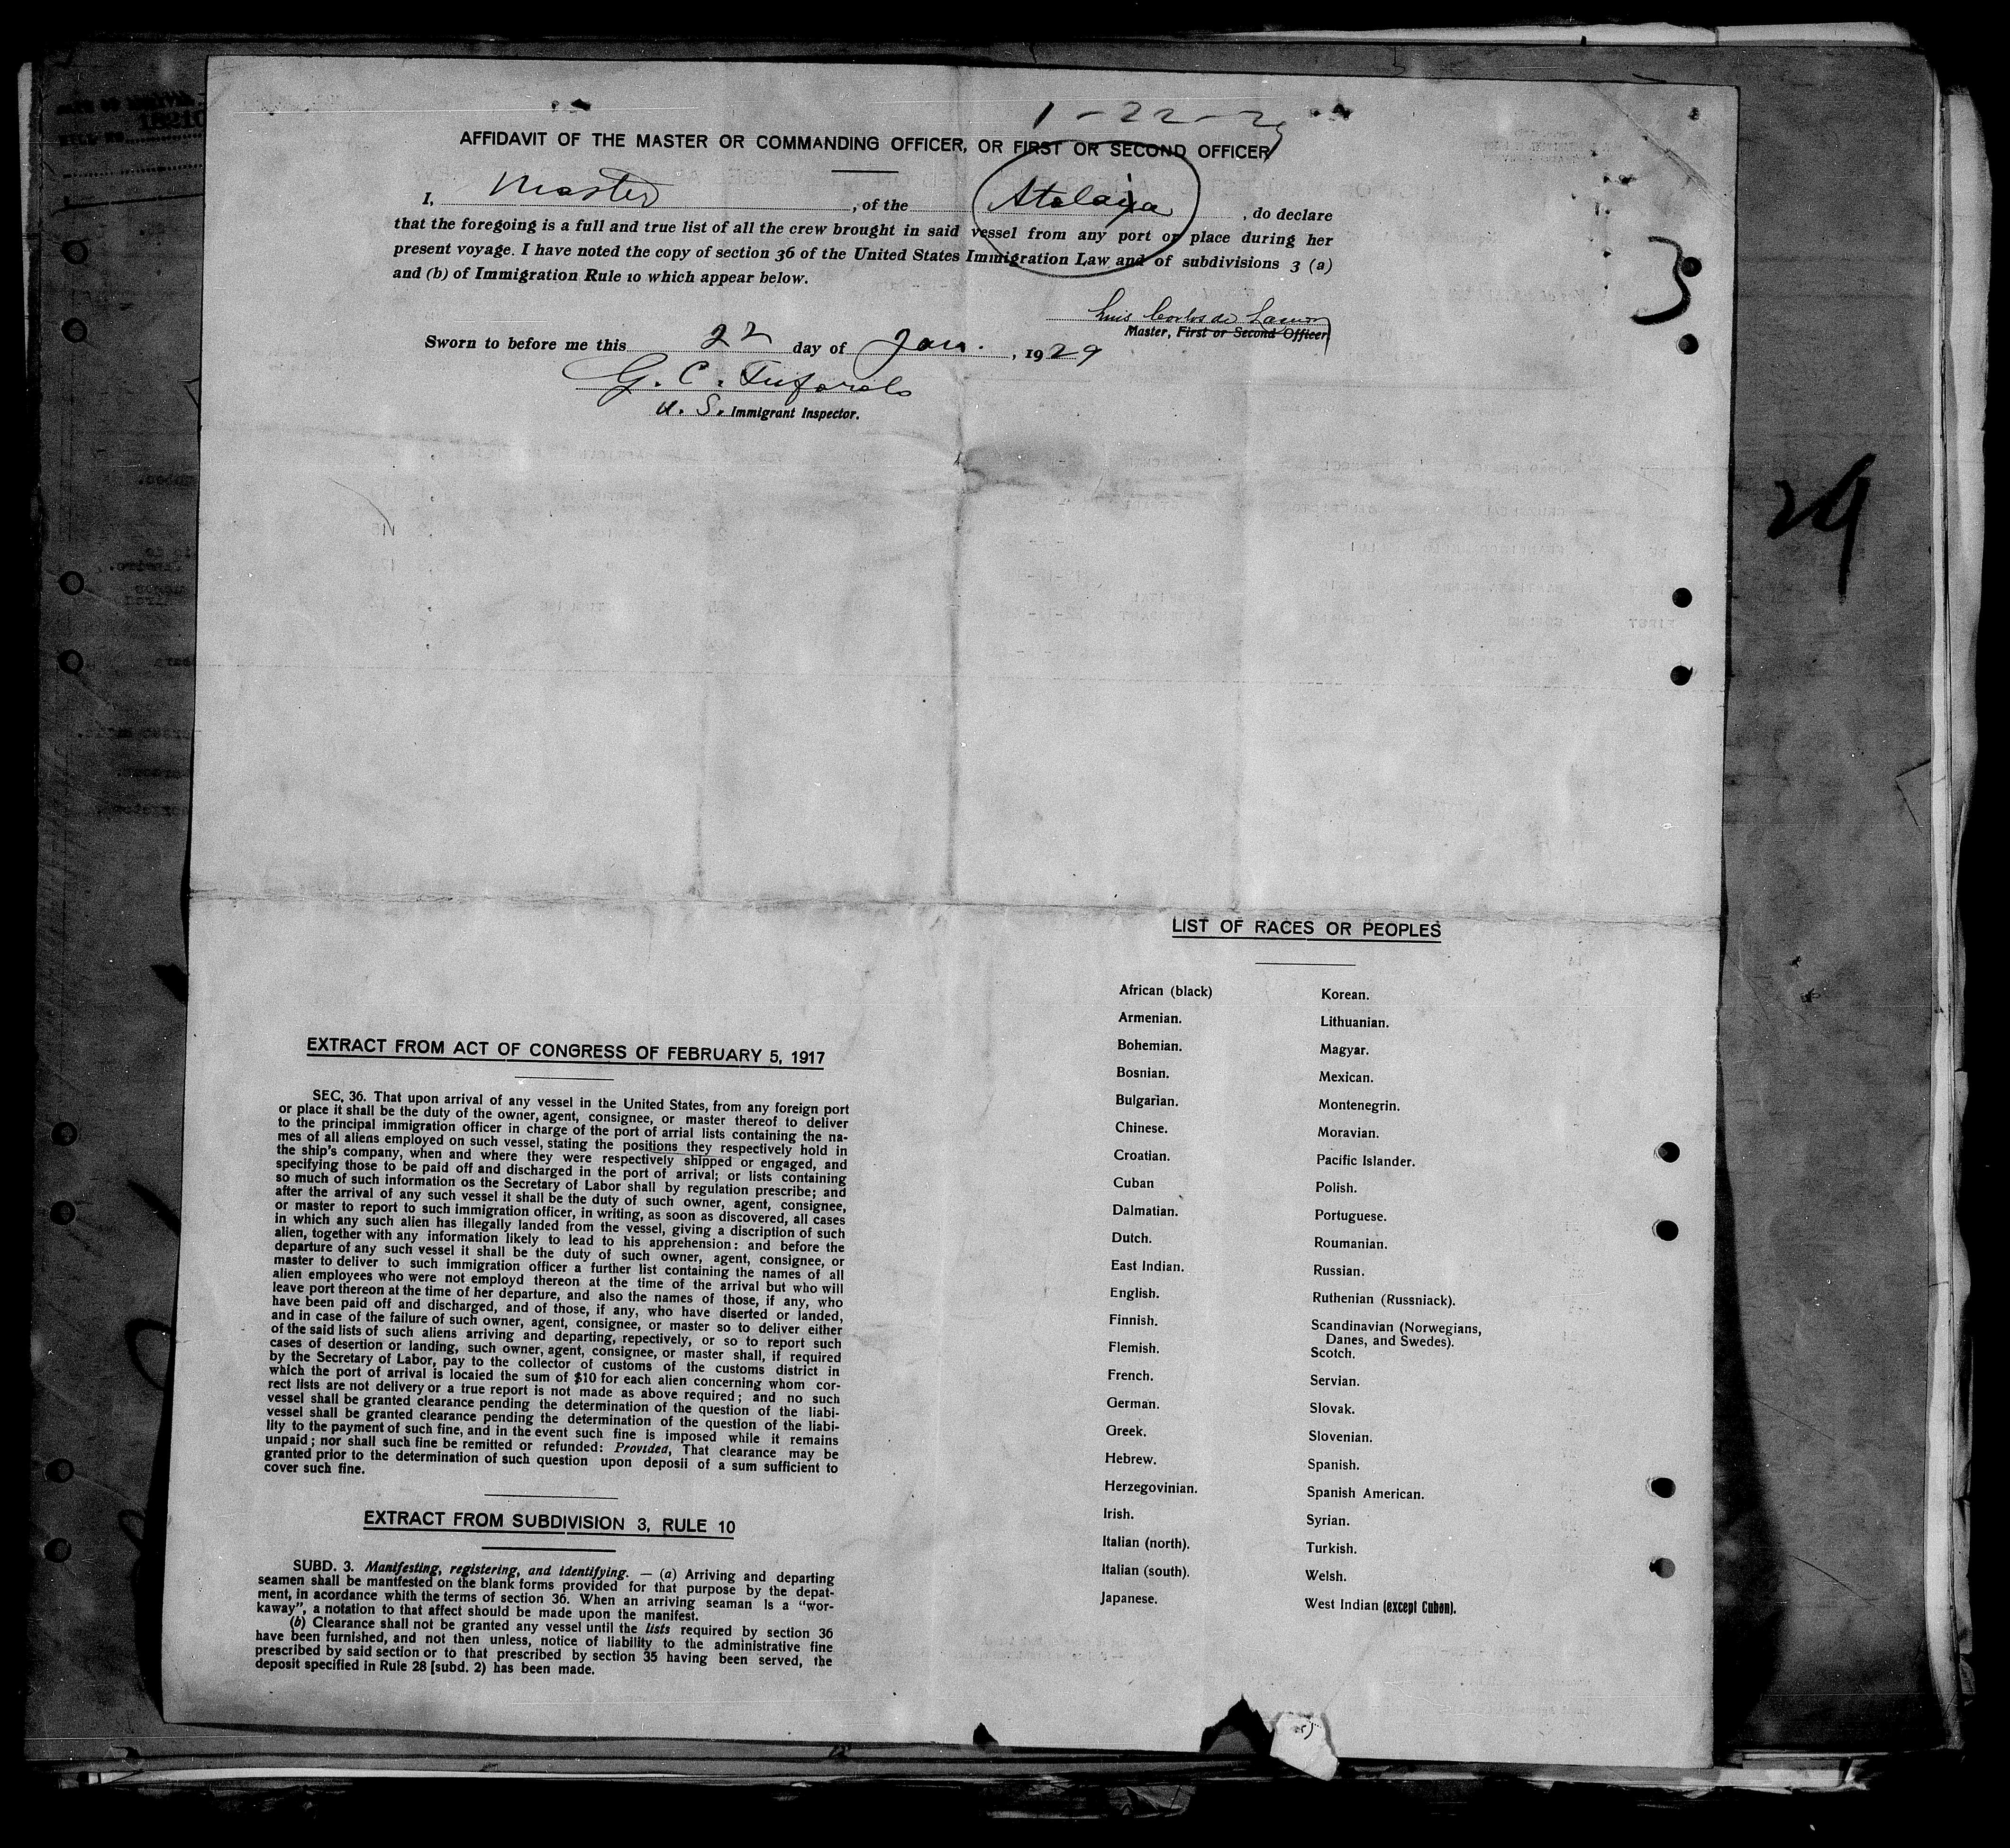 1-22-29
AFFIDAVIT OF THE MASTER OR COMMANDING OFFICER, OR FIRST OR SECOND OFFICER
I, Master, of the Atalaya, do declare
that the foregoing is a full and true list of all the crew brought in said vessel from any port or place during her
present voyage. I have noted the copy of section 36 of the United States Immigration Law and of subdivisions 3 (a)
and (b) of Immigration Rule 10 which appear below.
3
Luis Carlos de
Master, First or Second Officer
Sworn to before me this 22 day of Jan., 1929
G. C.
U. S. Immigrant Inspector.
29
LIST OF RACES OR PEOPLES
African (black)
Armenian.
Bohemian.
Bosnian.
Bulgarian.
Chinese.
Croatian.
Cuban
Dalmatian.
Dutch.
East Indian.
English.
Finnish.
Flemish.
French.
German.
Greek.
Hebrew.
Herzegovinian.
Irish.
Italian (north).
Italian (south).
Japanese.
Korean.
Lithuanian.
Magyar.
Mexican.
Montenegrin.
Moravian.
Pacific Islander.
Polish.
Portuguese.
Roumanian.
Russian.
Ruthenian (Russniack).
Scandinavian (Norwegians,
Danes, and Swedes).
Scotch.
Servian.
Slovak.
Slovenian.
Spanish.
Spanish American.
Syrian.
Turkish.
Welsh.
West Indian (except Cuban).
EXTRACT FROM ACT OF CONGRESS OF FEBRUARY 5, 1917
SEC. 36. That upon arrival of any vessel in the United States, from any foreign port
or place it shall be the duty of the owner, agent, consignee, or master thereof to deliver
to the principal immigration officer in charge of the port of arrial lists containing the na-
mes of all aliens employed on such vessel, stating the positions they respectively hold in
the ship's company, when and where they were respectively shipped or engaged, and
specifying those to be paid off and discharged in the port of arrival; or lists containing
so much of such information os the Secretary of Labor shall by regulation prescribe; and
after the arrival of any such vessel it shall be the duty of such owner, agent, consignee,
or master to report to such immigration officer, in writing, as soon as discovered, all cases
in which any such alien has illegally landed from the vessel, giving a discription of such
alien, together with any information likely to lead to his apprehension: and before the
departure of any such vessel it shall be the duty of such owner, agent, consignee, or
master to deliver to such immigration officer a further list containing the names of all
alien employees who were not employd thereon at the time of the arrival but who will
leave port thereon at the time of her departure, and also the names of those, if any, who
have been paid off and discharged, and of those, if any, who have diserted or landed,
and in case of the failure of such owner, agent, consignee, or master so to deliver either
of the said lists of such aliens arriving and departing, repectively, or so to report such
cases of desertion or landing, such owner, agent, consignee, or master shall, if required
by the Secretary of Labor, pay to the collector of customs of the customs district in
which the port of arrival is locaied the sum of $10 for each alien concerning whom cor-
rect lists are not delivery or a true report is not made as above required; and no such
vessel shall be granted clearance pending the determination of the question of the liabi-
vessel shall be granted clearance pending the determination of the question of the liabi-
lity to the payment of such fine, and in the event such fine is imposed while it remains
unpaid; nor shall such fine be remitted or refunded: Provided, That clearance may be
granted prior to the determination of such question upon deposii of a sum sufficient to
cover such fine.
EXTRACT FROM SUBDIVISION 3, RULE 10
SUBD. 3. Manifesting, registering, and identifying. — (a) Arriving and departing
seamen shall be mantfested on the blank forms provided for that purpose by the depat-
ment, in acordance whith the terms of section 36. When an arriving seaman is a "wor-
kaway", a notation to that affect should be made upon the manifest.
(b) Clearance shall not be granted any vessel until the lists required by section 36
have been furnished, and not then unless, notice of liability to the administrative fine
prescribed by said section or to that prescribed by section 35 having been served, the
deposit specified in Rule 28 [subd. 2) has been made.